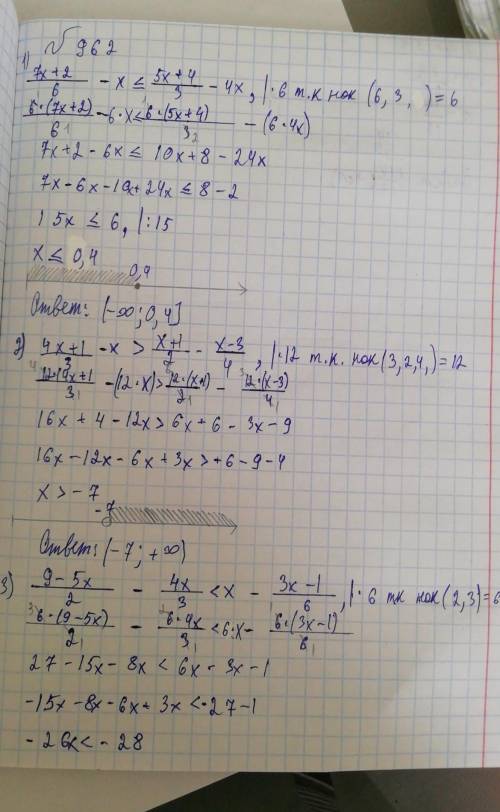 № 962
1) (7x+2)/6 - x ≤ (5x+4)/3 - 4x, |·6 т.к нок (6, 3, ) = 6
6·(7x+2)/6 - 6·x ≤ 6·(5x+4)/3 - (6·4x)
7x+2-6x ≤ 10x+8-24x
7x-6x-10x+24x ≤ 8-2
15x ≤ 6, |:15
x ≤ 0,4
0,4
Ответ: (-∞; 0,4]
2) (4x+1)/3 - x > (x+1)/2 - (x-3)/4, |·12 т.к. нок (3,2,4,) = 12
12·(4x+1)/3 - (12·x) > 12·(x+1)/2 - 12·(x-3)/4
16x + 4 - 12x > 6x + 6 - 3x - 9
16x - 12x - 6x + 3x > +6 - 9 - 4
x > -7
-7
Ответ: (-7; +∞)
3) (9-5x)/2 - 4x/3 < x - (3x-1)/6, |·6 тк нок (2,3) = 6
6·(9-5x)/2 - 6·4x/3 < 6·x - 6·(3x-1)/6
27 - 15x - 8x < 6x - 3x - 1
-15x - 8x - 6x + 3x < -27 - 1
-26x < -28